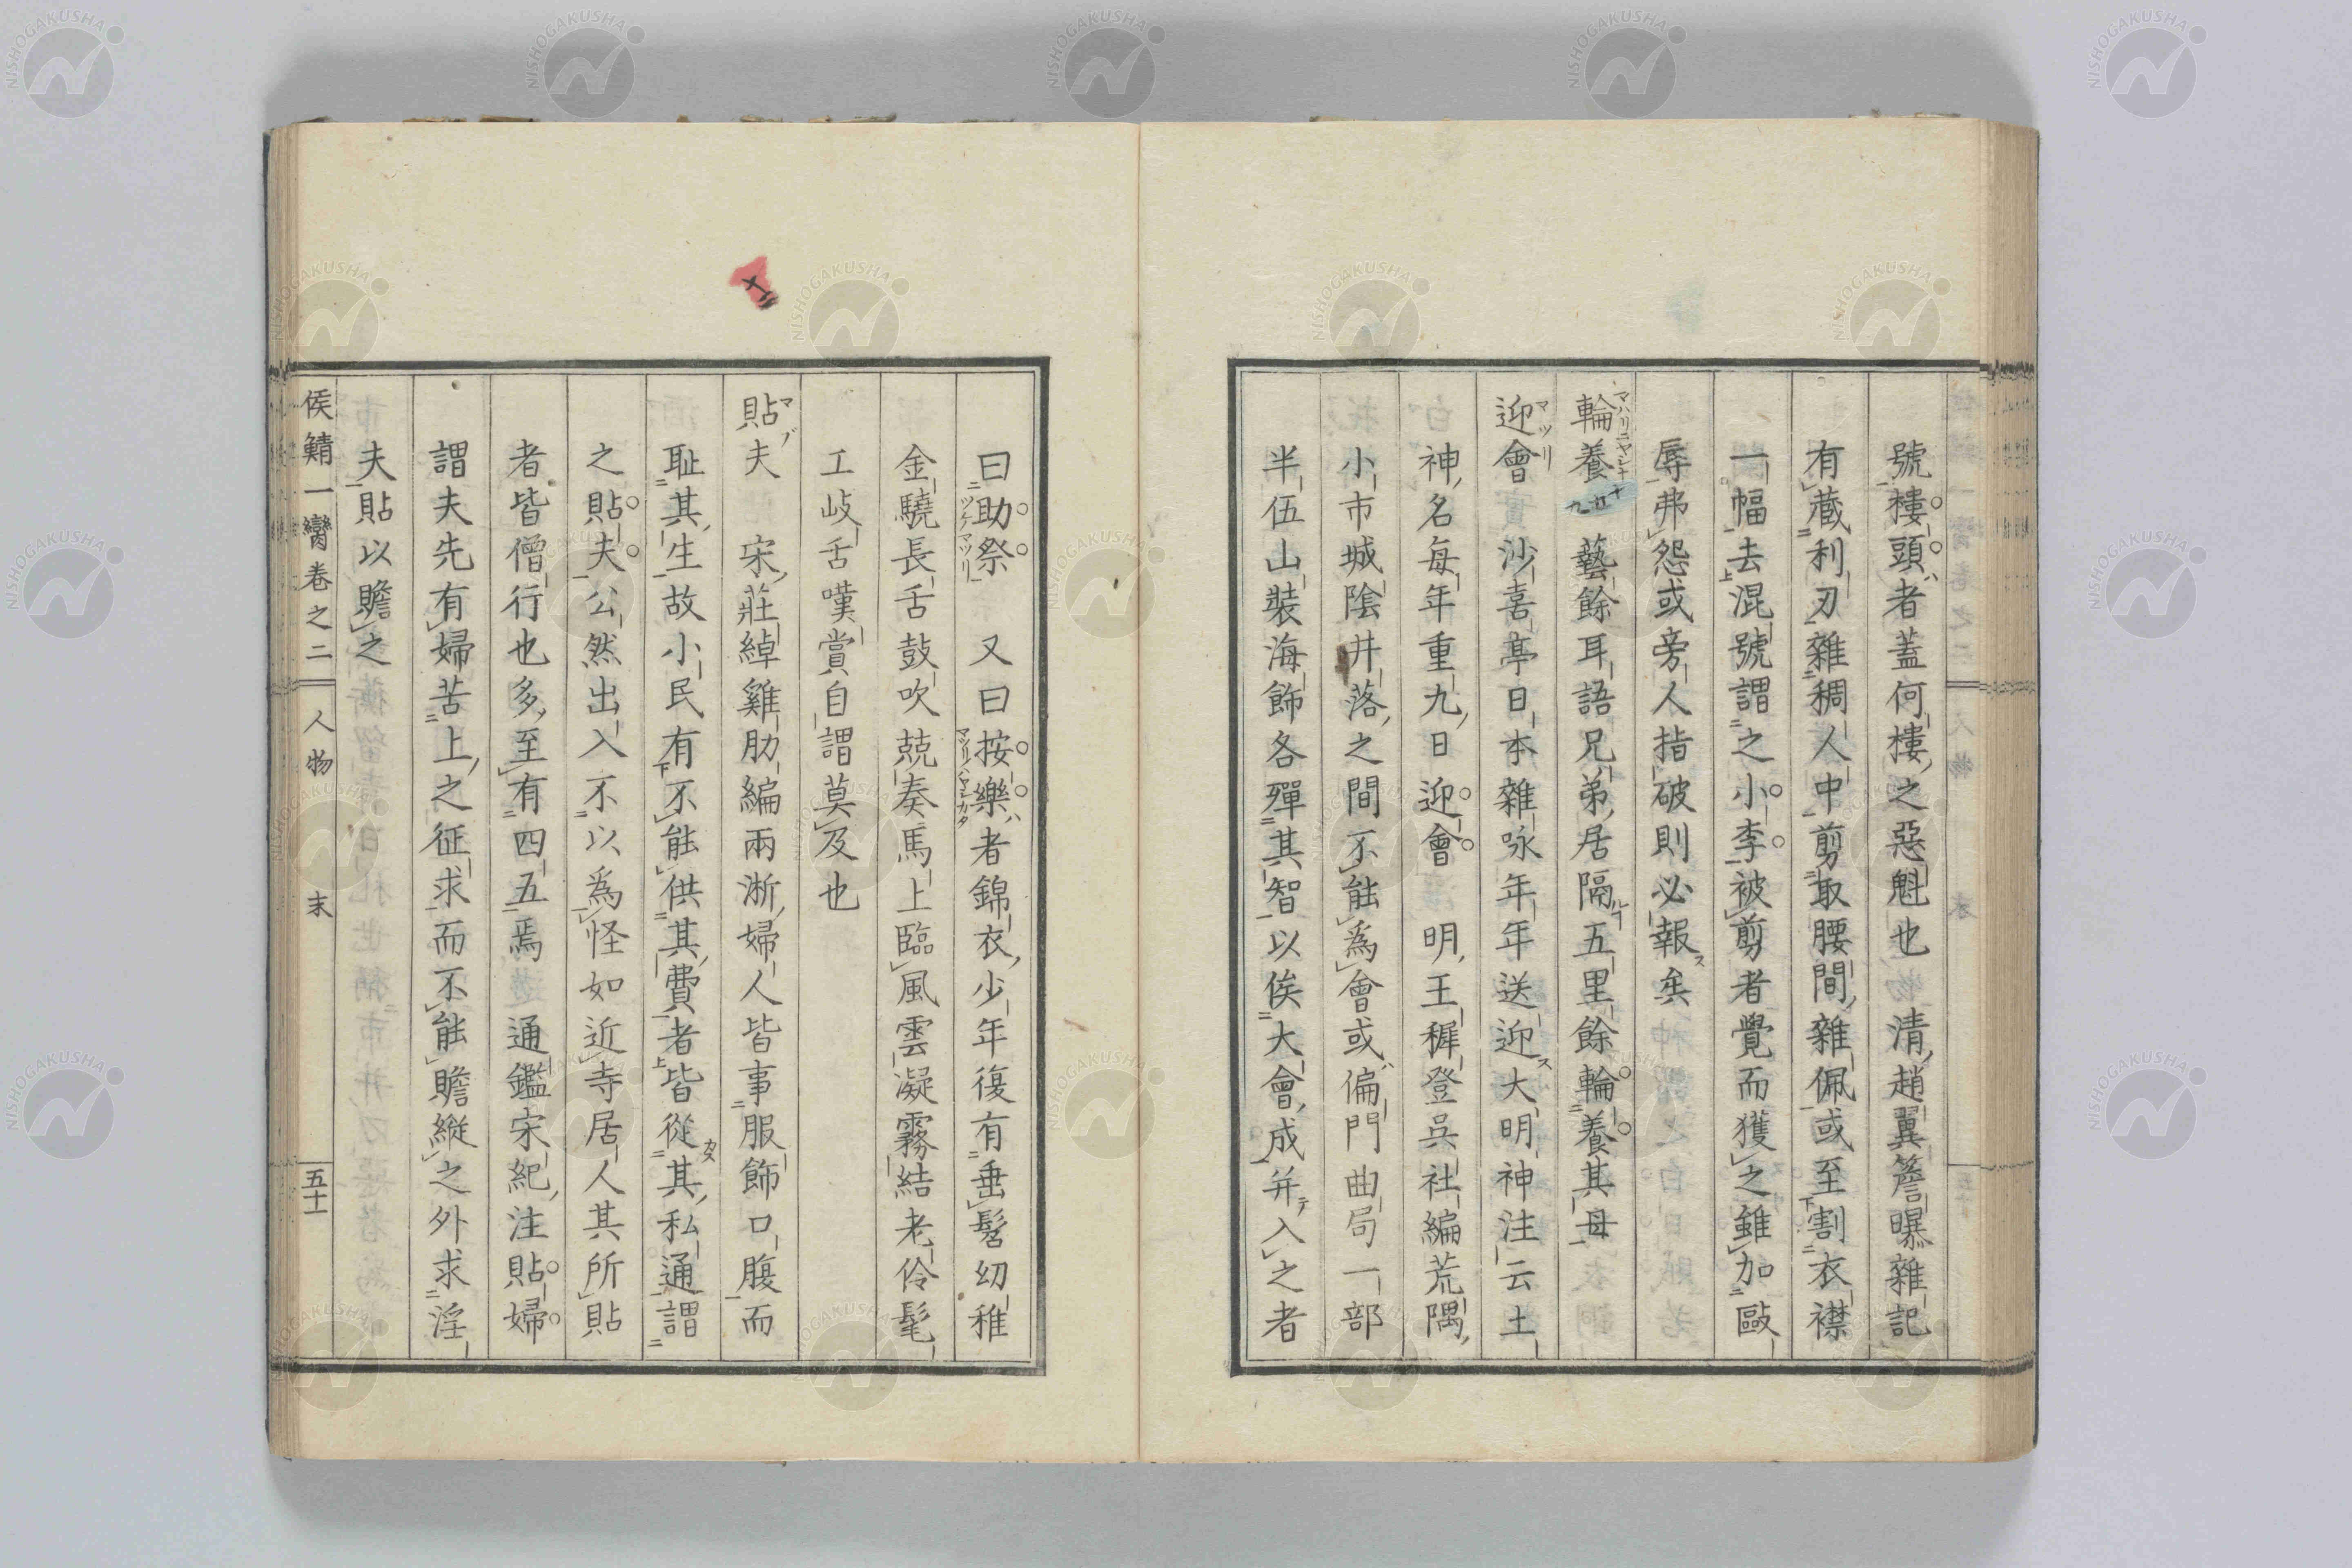 號樓頭者蓋何樓之惡魁也清趙翼簷曝雜記
有藏利刃雜稠人中剪取腰間雜佩或至割衣襟
一幅去混號謂之小李被剪者覺而獲之雖加毆
辱弗怨或旁人指破則必報矣
輪養 藝餘耳語兄弟居隔五里餘輪養其母
マハリニヤシナ
十廿九
迎會 沙喜亭日本雜咏年年送迎大明神注云土
マツリ
神名每年重九日迎會 明王穉登吳社編荒隅
小市城陰井落之間不能爲會或偏門曲局一部
半伍山裝海飾各殫其智以俟大會成并入之者
曰助祭 又曰按樂者錦衣少年復有垂髫幼稚
ツケマツリ
金驍長舌鼓吹兢奏馬上臨風雲凝霧結老伶髦
工岐舌嘆賞自謂莫及也
貼夫 宋莊綽雞肋編兩淅婦人皆事服飾口腹而
マブ
恥其生故小民有不能供其費者皆從其私通謂
之貼夫公然出入不以爲怪如近寺居人其所貼
者皆僧行也多至有四五焉 通鑑宋紀注貼婦
謂夫先有婦苦上之征求而不能贍縱之外求淫
夫貼以贍之
侯鯖一臠卷之二 人物 末 五十
十二
NISHOGAKUSHA